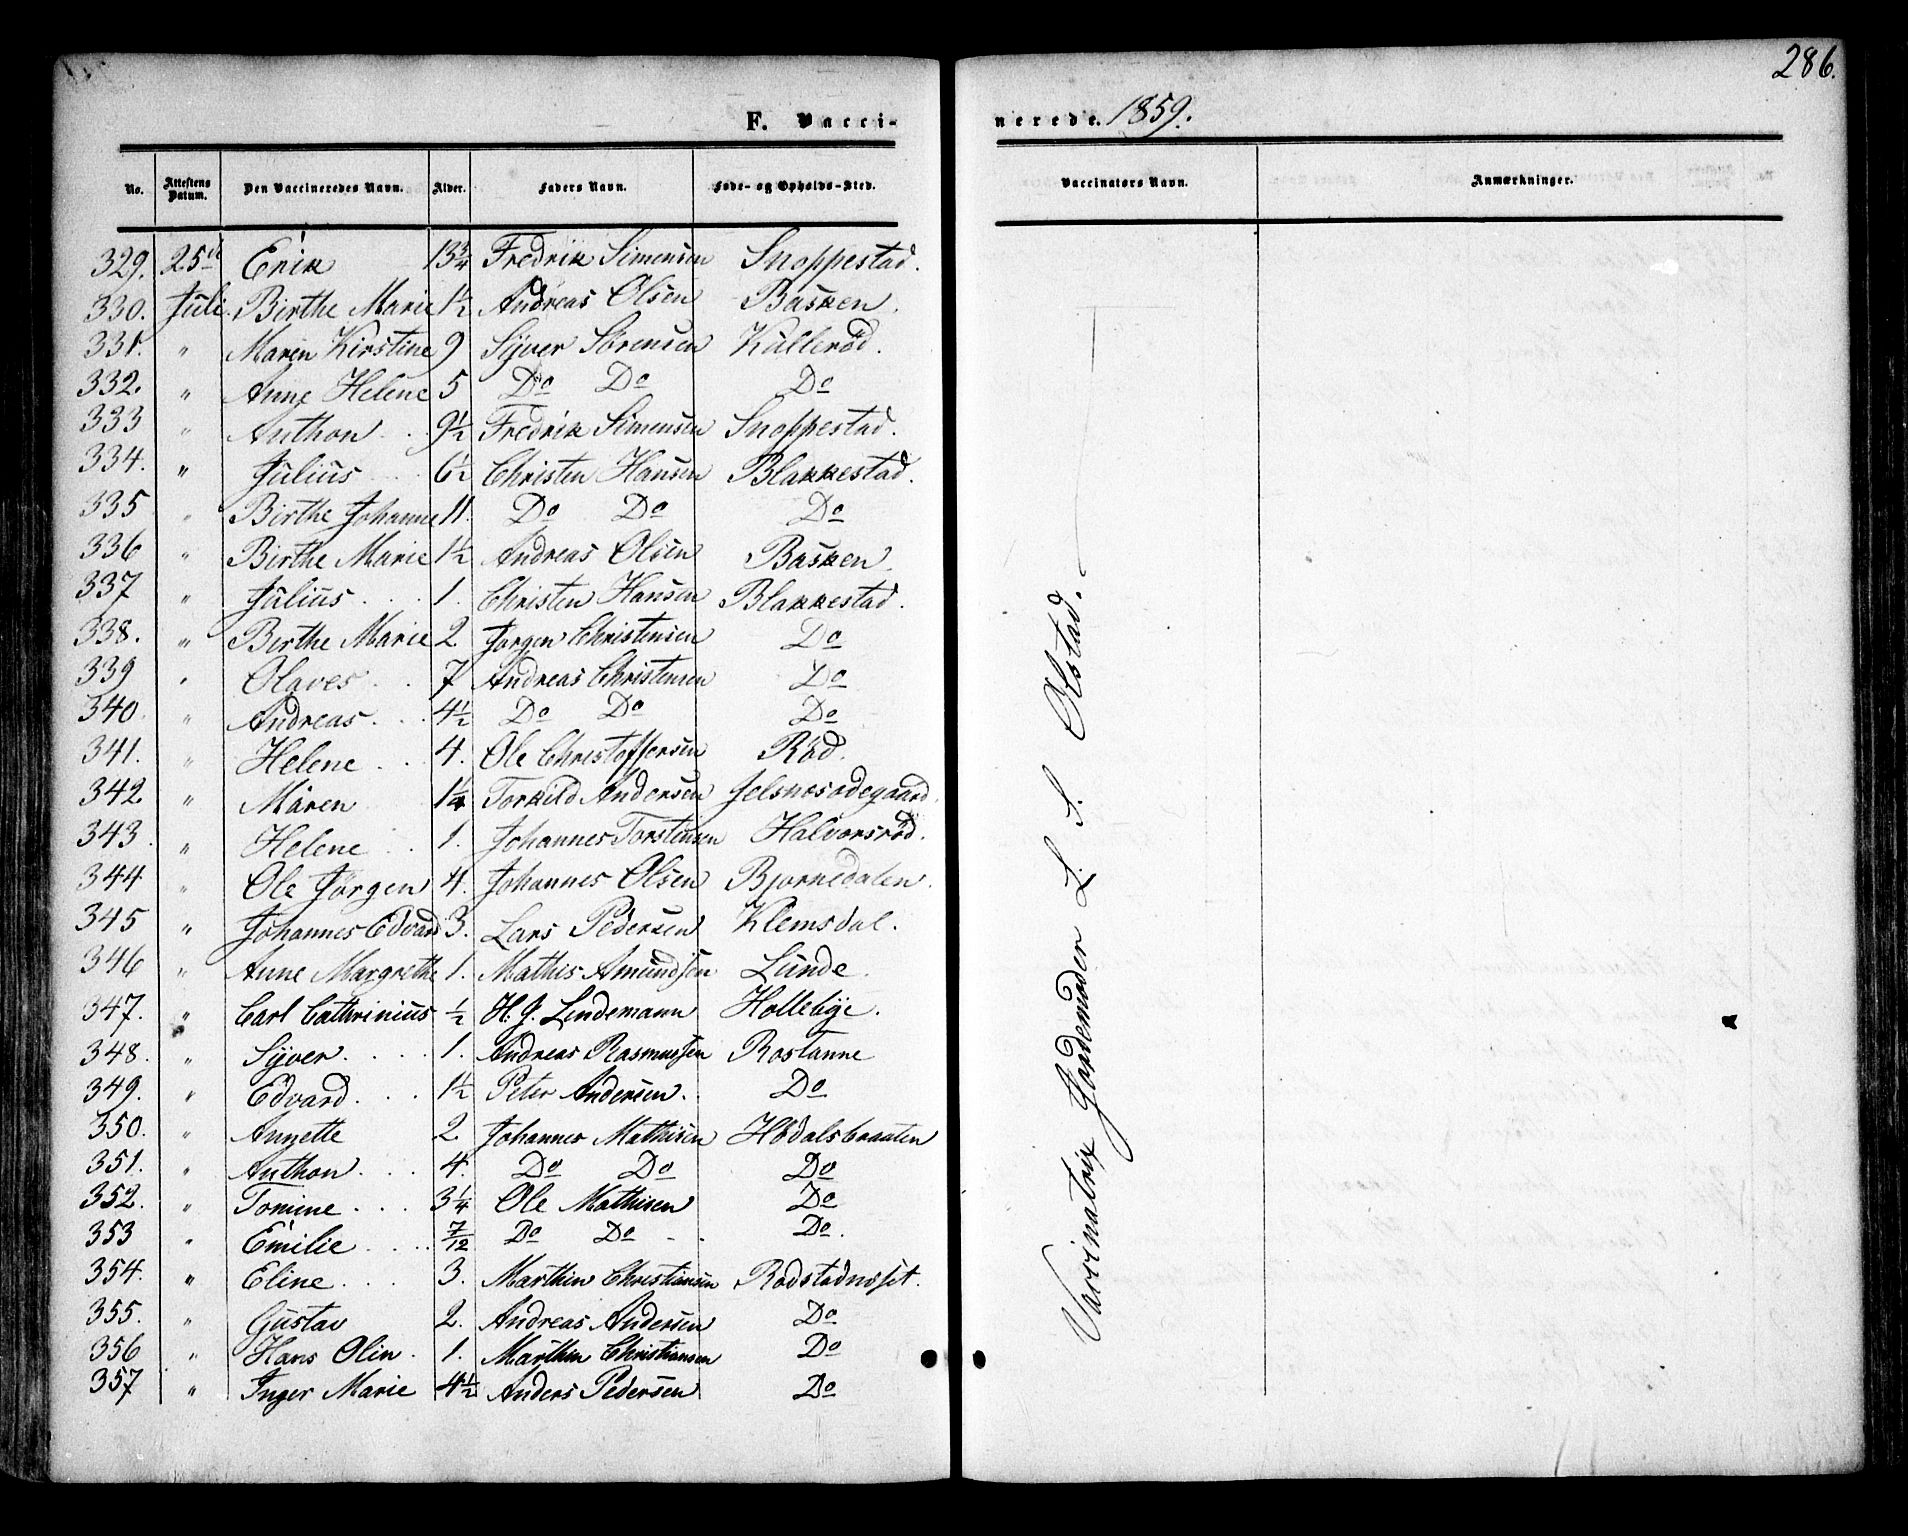 286.
F. Vacci-
nerede. 1859.
No. Attestens Datum. Den Vaccineredes Navn. Alder. Faders Navn. Føde- og Opholds-Sted. Vaccinators Navn. Anmærkninger.
329. 25de Erik 13 3/4 Fredrik Simensen Snoppestad.
330. Juli. Birthe Marie 1 1/2 Andreas Olsen Basken.
331. " Maren Kirstine 9 Syver Sørensen Kullerød.
332. " Anne Helene 5 Do Do Do
333 " Anthon . . 9 1/2 Fredrik Simensen Snoppestad.
334. " Julius . . . 6 1/2 Christen Hansen Blakkestad.
335 " Birthe Johanne 11. Do Do Do
336 " Birthe Marie 1 1/2 Andreas Olsen Basken.
337 " Julius . . . 1. Christen Hansen Blakkestad.
338. " Birthe Marie 2. Jørgen Christensen Do
339 " Olaves . . 7 Andreas Christensen Do
340. " Andreas. . . 4 1/2 Do Do Do
341. " Helene . . . 4. Ole Christoffersen Röd.
342. " Maren 1 1/4 Torkild Andersen Jelsnesødegaard.
343. " Helene . . 1. Johannes Torstensen Halvorsrød.
344 " Ole Jörgen 4. Johannes Olsen Bjornedalen.
345 " Johannes Edvard 3. Lars Pedersen Klemsdal.
346 " Anne Margrethe 1. Mathis Amundsen Lunde.
347. " Carl Cathrinius 1/2 H. J. Lindemann Hollebye.
348. " Syver. . . . 1. Andreas Rasmussen Rostanne
349. " Edvard. . . 1 1/2 Peter Andersen. Do
350. " Annette 2. Johannes Mathisen Hödalsbraaten
351. " Anthon. . . 4. Do Do Do
352. " Tomine. . . . 3 1/4 Ole Mathisen Do
353 " Emilie . . . . 7/12 Do Do - . Do.
354. " Eline . . . 3. Marthin Christiansen Rodstadnæset.
355. " Gustav 2. Andreas Andersen Do
356 " Hans Olin . 1. Marthin Christiansen Do
357 " Inger Marie 4 1/2 Anders Pedersen Do
Vaccinatrix Jordemoder L. S. Olstad.